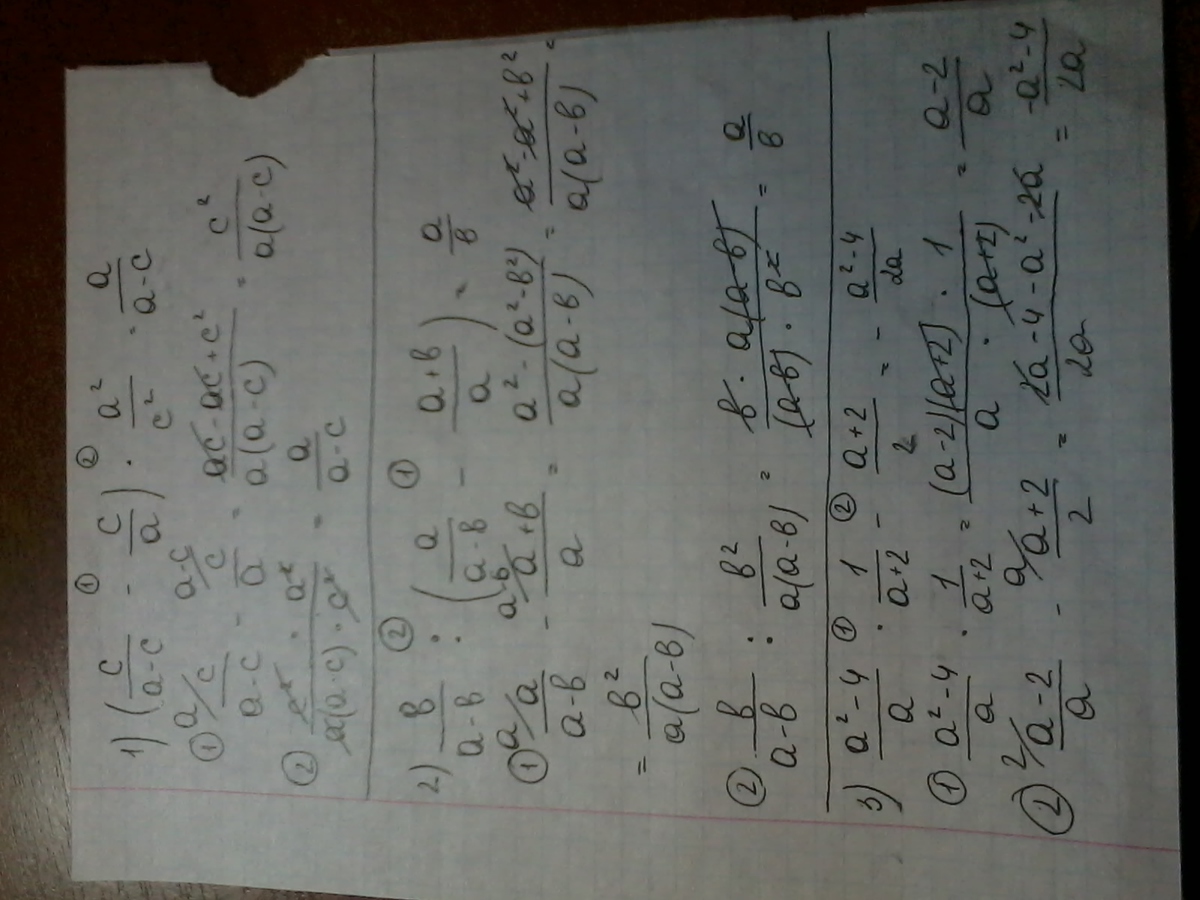 1) (c/(a-c) - c/a) · a²/c² = a/(a-c)
① ② 
① a/ c/(a-c) - a-c/ c/a = (ac-ac+c²)/(a(a-c)) = c²/(a(a-c))
② (c² · a²)/(a(a-c) · c²) = a/(a-c)
2) b/(a-b) ② : (a/(a-b) ① - (a+b)/a) = a/b
① a/ a/(a-b) - a-b/ (a+b)/a = (a²-(a²-b²))/(a(a-b)) = (a²-a²+b²)/(a(a-b)) =
= b²/(a(a-b))
② b/(a-b) : b²/(a(a-b)) = (b · a(a-b))/((a-b) · b²) = a/b
3) (a²-4)/a ① · 1/(a+2) ② - (a+2)/2 = - (a²-4)/2a
① (a²-4)/a · 1/(a+2) = ((a-2)(a+2) · 1)/(a · (a+2)) = (a-2)/a
② 2/ (a-2)/a - a/ (a+2)/2 = (2a-4-a²-2a)/2a = (-a²-4)/2a